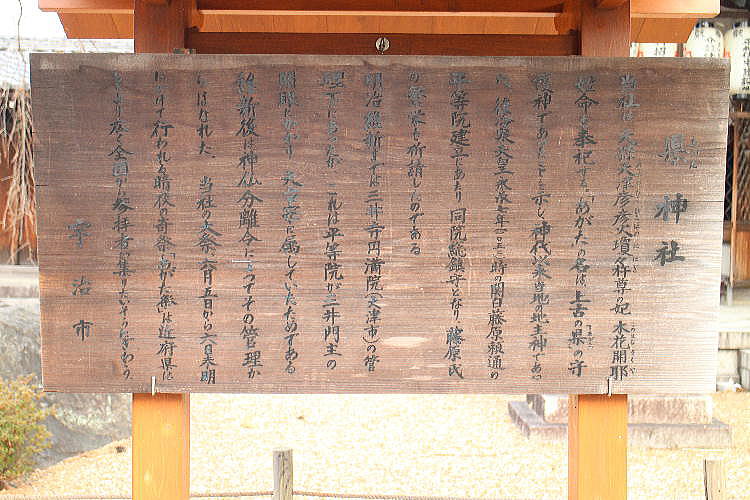 県神社
当社は、天孫天津彦彦火瓊々杵尊の妃 木花開耶
姫命を奉祀する。「あがた」の名は、上古の県の守
護神であったことを示し、神代以来当地の地主神であっ
た。後冷泉天皇永承七年(一〇五二)時の関白藤原頼通の
平等院建立にあたり、同院総鎮守となり、藤原氏
の繁栄を祈請したのである
明治維新までは三井寺円満院(大津市)の管
理下にあったが、これは平等院が三井門主の
開眼にかかり、天台宗に属していたためである
維新後は神仏分離令によってその管理か
らはなれた。 当社の大祭、六月五日から六日未明
にかけて行われる暗夜の奇祭「あがた祭」は近府県は
もとより広く全国から参拝者が集りたいそう賑わう。
宇治市